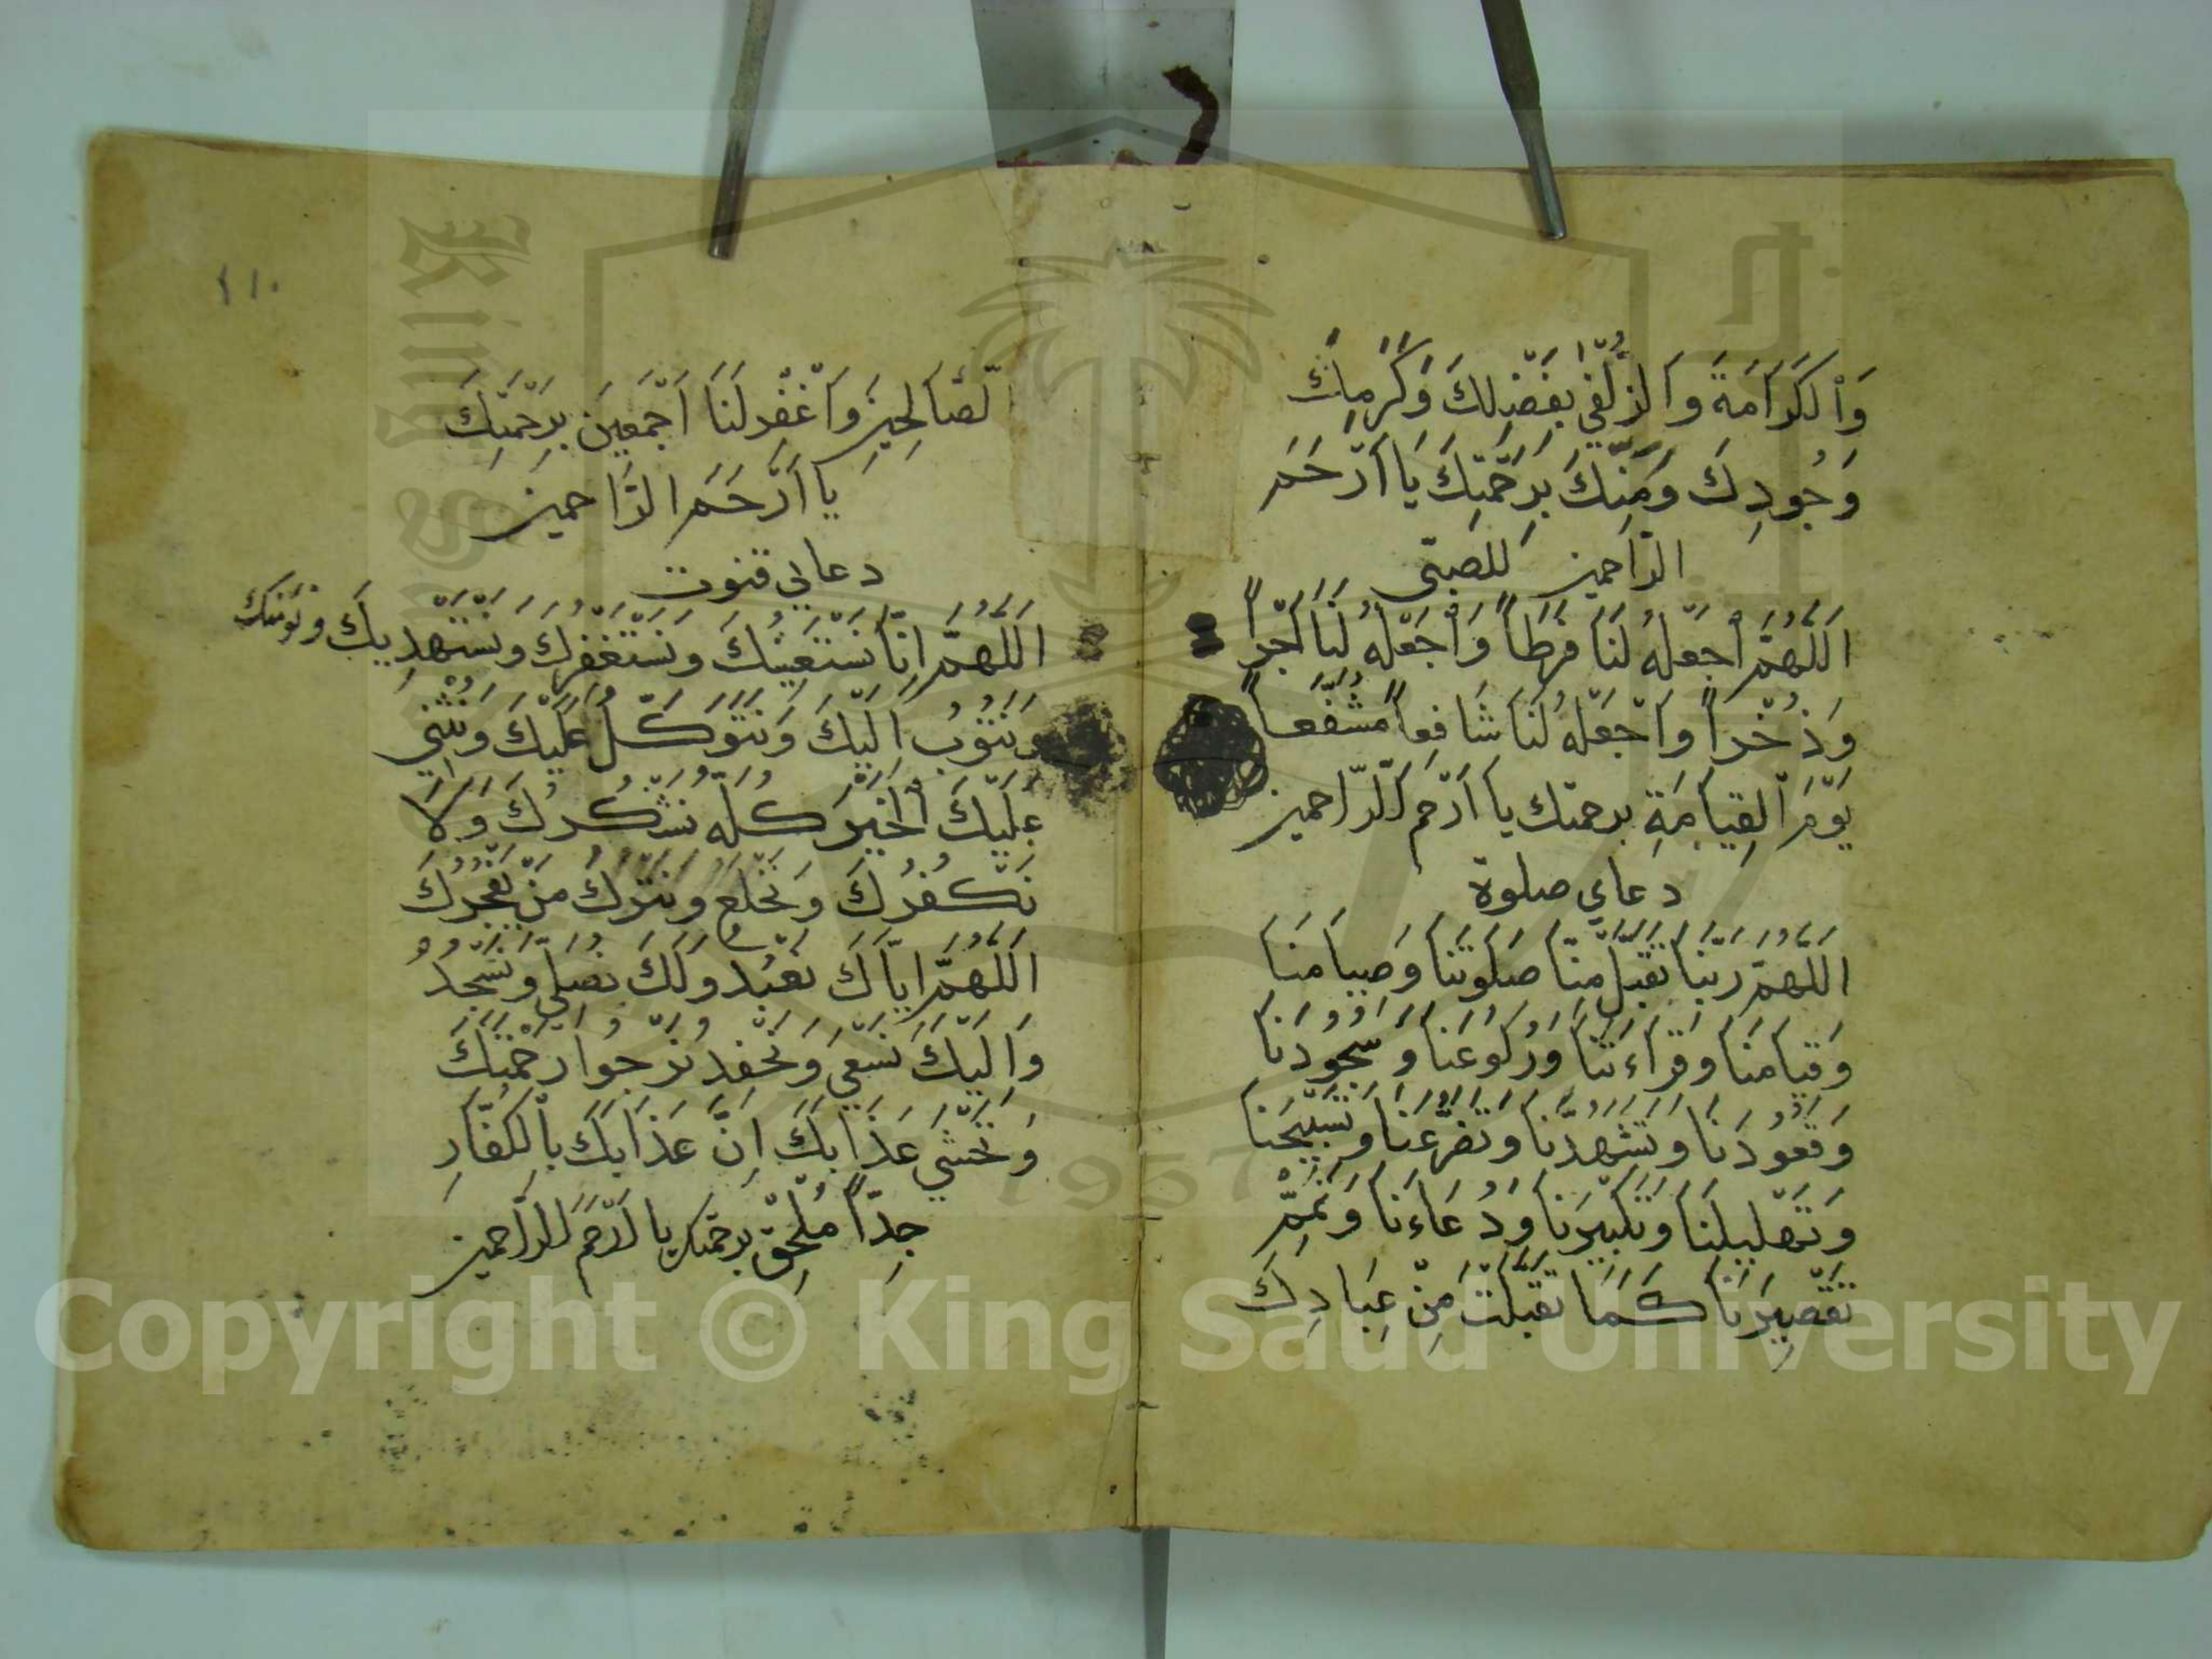 وَاْلكَرَامَةَ وَالزُّلْفَى بِفَضْلِكَ وَكَرَمِكَ
وَجُودِكَ وَمَنِّكَ بِرَحْمَتِكَ يَا اَرْحَمَ
الرَّاحمين للصبى
اَللَّهُمَّ اْجْعَلْهُ لَنَا فَرَطاً وَاْجْعَلْهُ لَنَا اَجْراً
وَذُخْراً وَاجْعَلْهُ لَنَا شَافِعاً مُشَفَّعاً
يَوْمَ اْلقِيَامَةِ برحمتك يا اَرْحَمَ الرَّاحمين
دعاي صلوة
اَللَّهُمَّ رَبَّنَا تَقَبَّلْ مِنَّا صَلَوتَنَا وَصِيَامَنَا
وَقِيَامَنَا وَقِرَاءَتَنَا وَرُكُوعَنَا وَسُجُودَنَا
وَقُعُودَنَا وَتَشَهُدَّنَا وَتَضَرُّعَنَا وَتَسْبِيحَنَا
وَتَهْلِيلَنَا وَتَكْبِيرَنَا وَدُعَاءَنَا وَتَمِّمْ
تَقْصِيرَنَا كَمَا تَقَبَّلْتَ مِنْ عِبَادِكَ
١١٠
الصَّالِحِينَ وَاغْفِرْ لَنَا اَجْمَعِينَ بِرَحْمَتِكَ
يَا اَرْحَمَ الرَّاحمين
دعاي قنوت
اَللَّهُمَّ اِنَّا نَسْتَعِينُكَ وَنَسْتَغْفِرُكَ وَنَسْتَهْدِيكَ وَنُؤْمِنُ بِكَ
وَنَتُوبُ اِلَيْكَ وَنَتَوَكَّلُ عَلَيْكَ وَنُثْنِي
عَلَيْكَ اْلخَيْرَ كُلَّهُ نَشْكُرُكَ وَلَا
نَكْفُرُكَ وَنَخْلَعُ وَنَتْرُكُ مَنْ يَفْجُرُكَ
اَللَّهُمَّ اِيَّاكَ نَعْبُدُ وَلَكَ نُصَلِّى وَنَسْجُدُ
وَاِلَيْكَ نَسْعَى وَنَحْفِدُ نَرْجُوا رَحْمَتَكَ
وَنَخْشَى عَذَابَكَ اِنَّ عَذَابَكَ بِاْلكُفَّارِ
جِدّاً مُلْحِقْ برحمتك يا اَرْحَمَ الرَّاحمين
Copyright © King Saud University
1957